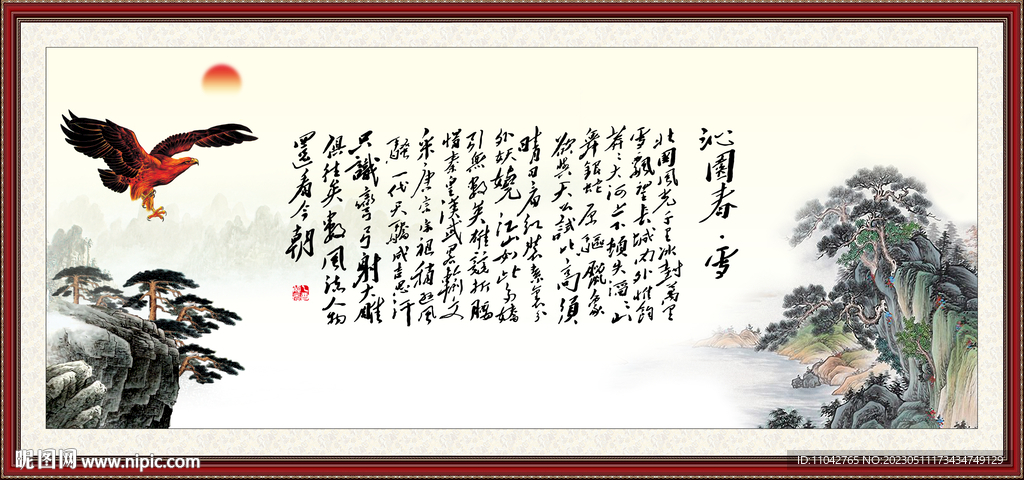 沁園春·雪
北國風光千里冰封萬里
雪飄望長城内外惟餘
莽〻大河上下頓失滔〻山
舞銀蛇原驅臘象
欲與天公試比高須
晴日看紅裝素裹分
外妖嬈江山如此多嬌
引無數英雄競折腰
惜秦皇漢武略輸文
采唐宗宋祖稍遜風
騷一代天驕成吉思汗
只識彎弓射大雕
俱往矣數風流人物
還看今朝
昵图网 www.nipic.com
ID:11042765 NO:20230511173434749129